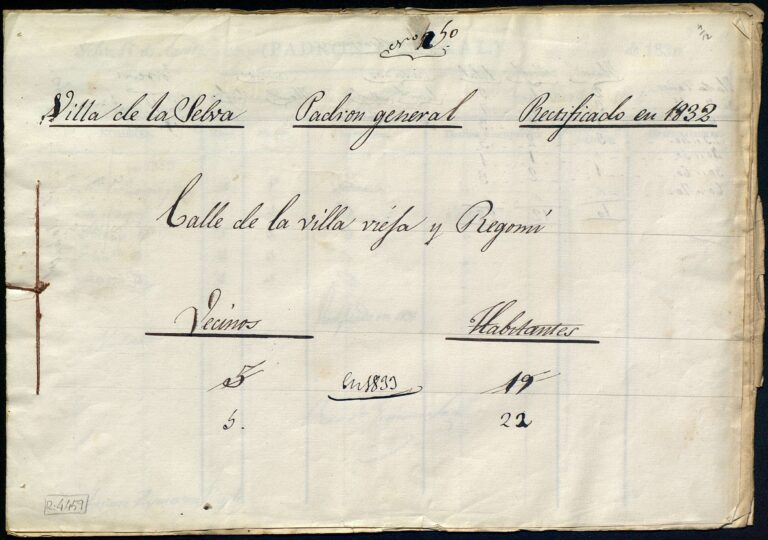 Villa de la Selva Padron general Rectificado en 1832
Calle de la villa viéja y Regomí
Vecinos Habitantes
5 en 1833 19
5. 22
R-4459